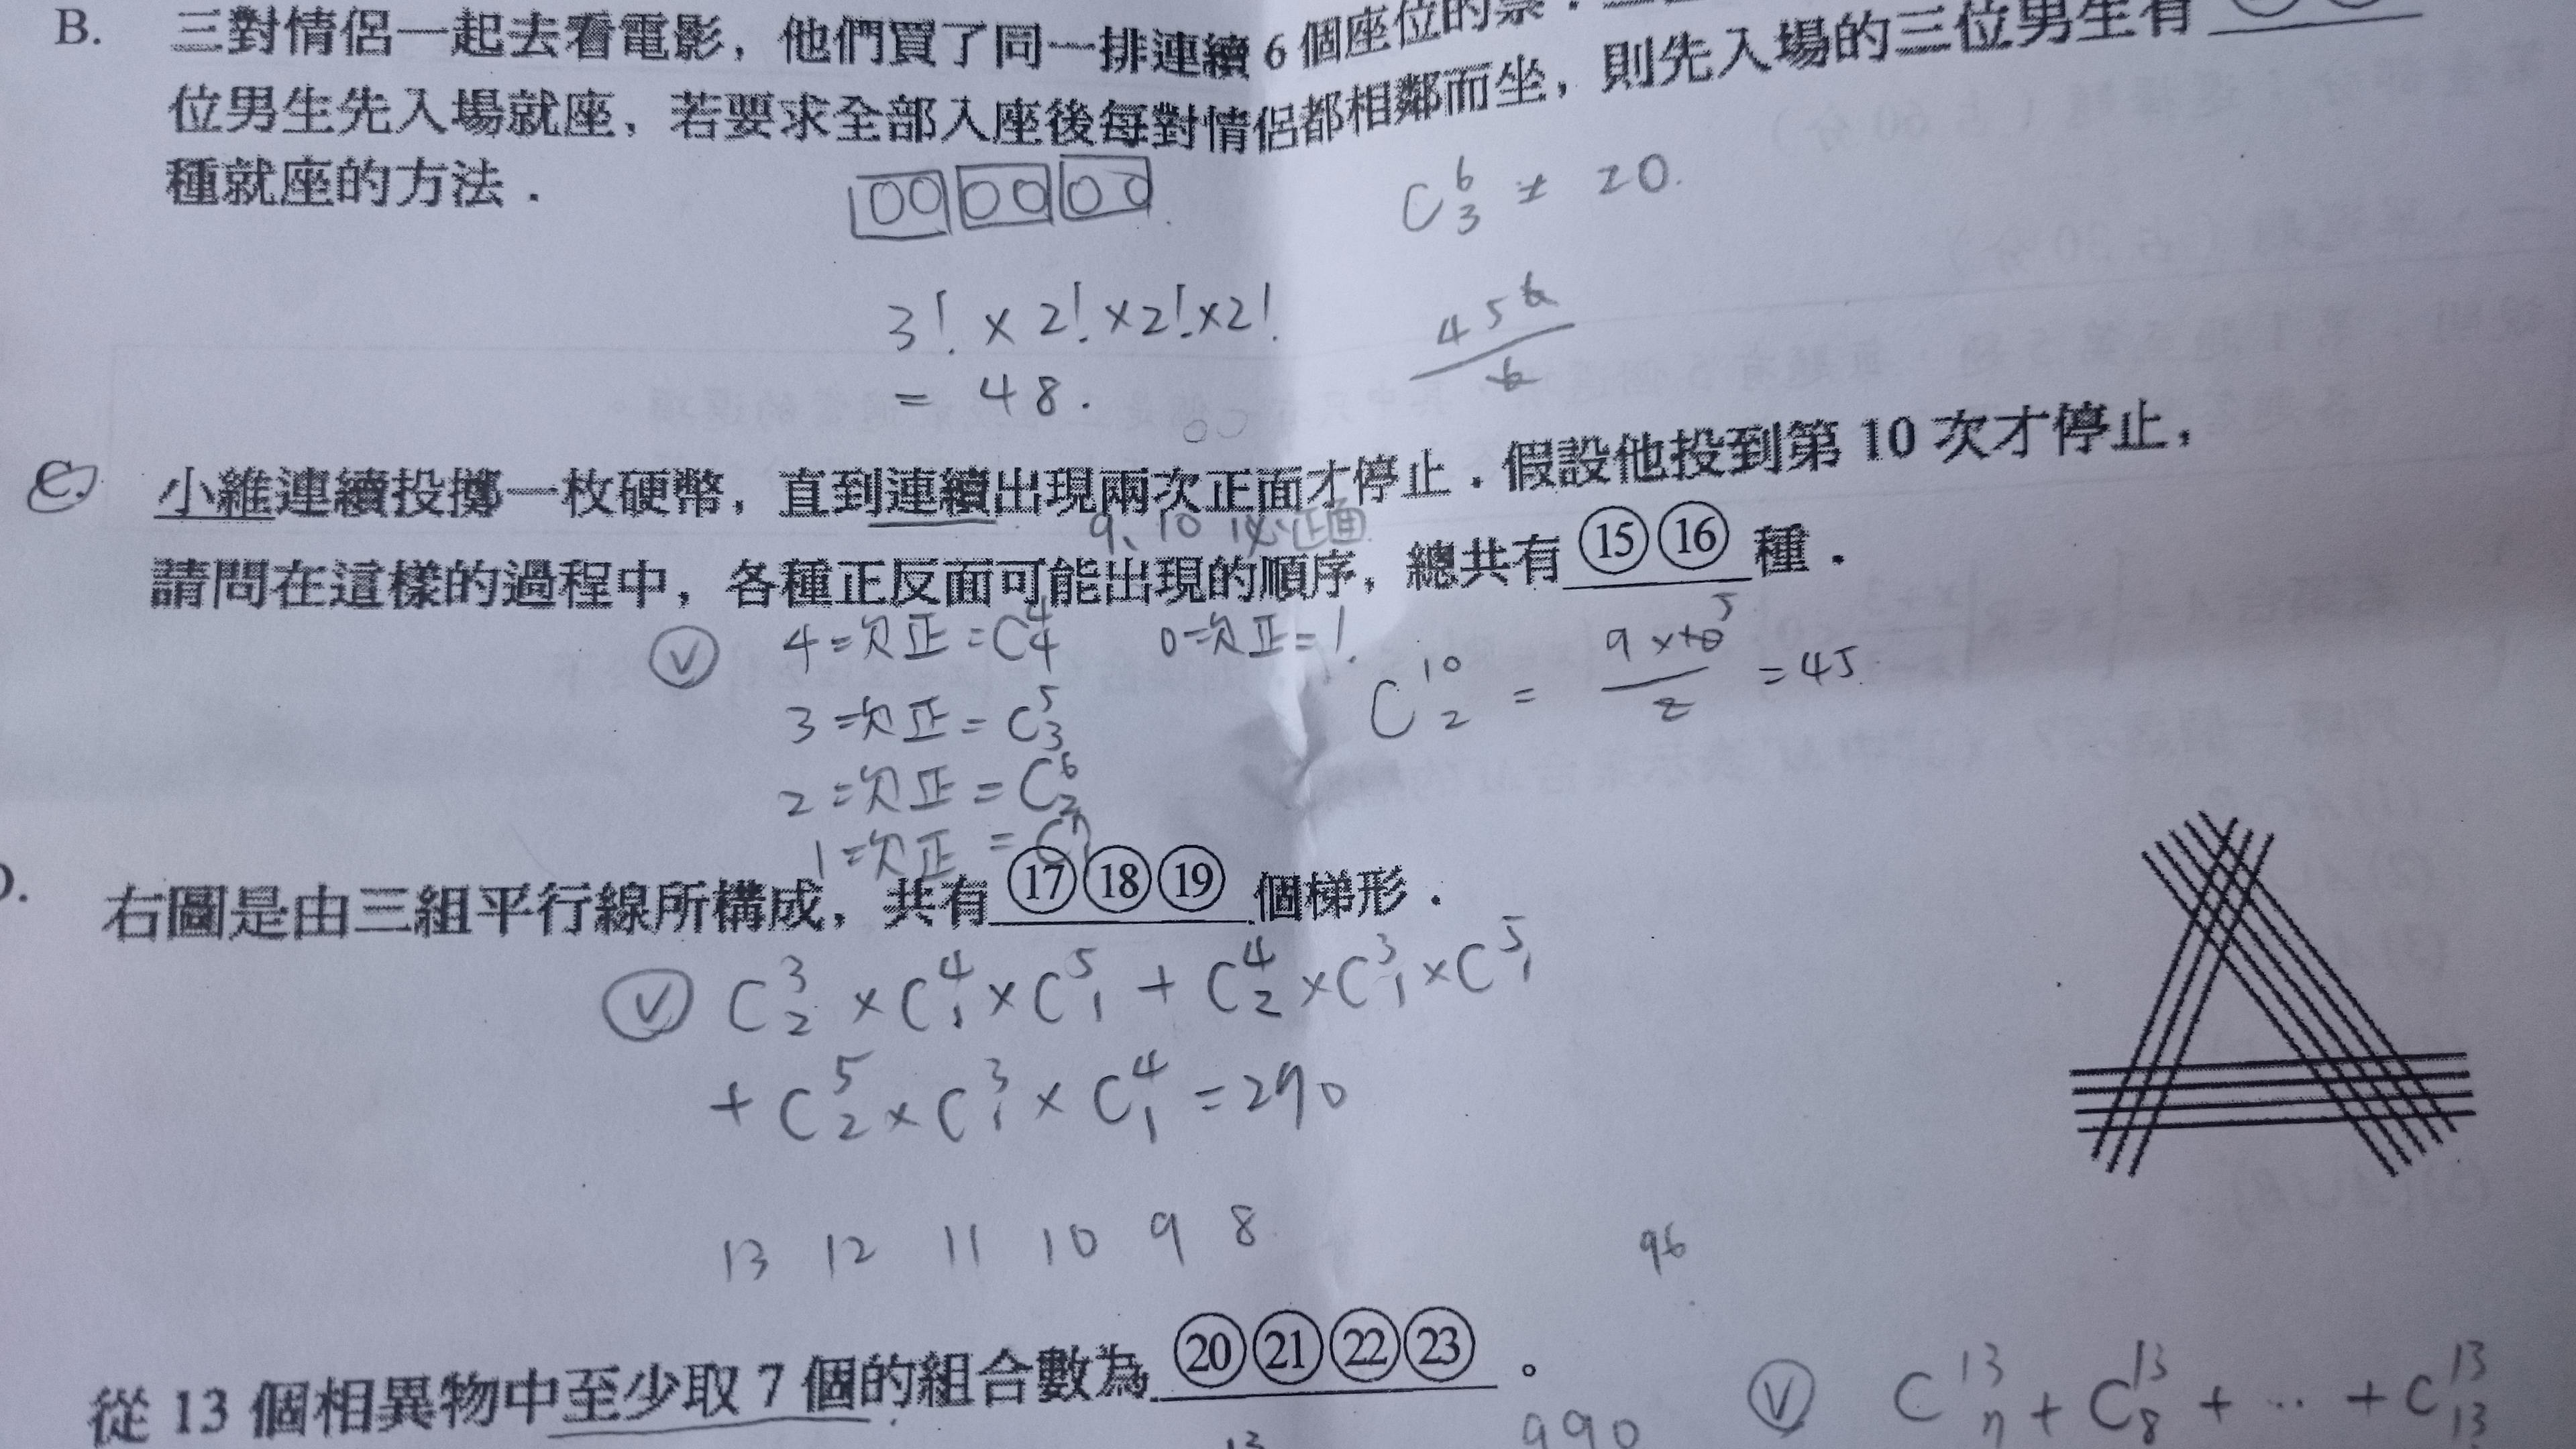 B. 三對情侶一起去看電影，他們買了同一排連續 6 個座位的票．
位男生先入場就座，若要求全部入座後每對情侶都相鄰而坐，則先入場的三位男生有
種就座的方法．
C^6_3 = 20.
3! × 2! × 2! × 2!
= 48.
4 5 6
6
C. 小維連續投擲一枚硬幣，直到連續出現兩次正面才停止．假設他投到第 10 次才停止，
9、10 必正面
請問在這樣的過程中，各種正反面可能出現的順序，總共有 ⑮⑯ 種．
V 4次正 = C^4_4 0次正 = 1.
3次正 = C^5_3
2次正 = C^6_2
1次正 = C^7_1
C^10_2 = 9×10/2 = 45
5
D. 右圖是由三組平行線所構成，共有 ⑰⑱⑲ 個梯形．
V C^3_2 × C^4_1 × C^5_1 + C^4_2 × C^3_1 × C^5_1
+ C^5_2 × C^3_1 × C^4_1 = 290
13 12 11 10 9 8
96
從 13 個相異物中至少取 7 個的組合數為 ⑳㉑㉒㉓ 。
V C^13_7 + C^13_8 + ‥ + C^13_13
990
13